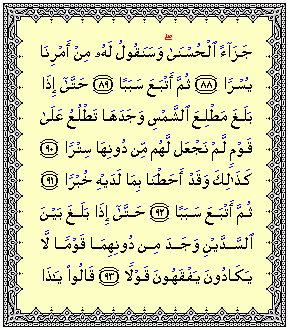 جَزَآءً ٱلْحُسْنَىٰ ۖ وَسَنَقُولُ لَهُۥ مِنْ أَمْرِنَا
يُسْرًا ﴿٨٨﴾ ثُمَّ أَتْبَعَ سَبَبًا ﴿٨٩﴾ حَتَّىٰٓ إِذَا
بَلَغَ مَطْلِعَ ٱلشَّمْسِ وَجَدَهَا تَطْلُعُ عَلَىٰ
قَوْمٍ لَّمْ نَجْعَل لَّهُم مِّن دُونِهَا سِتْرًا ﴿٩٠﴾
كَذَٰلِكَ وَقَدْ أَحَطْنَا بِمَا لَدَيْهِ خُبْرًا ﴿٩١﴾
ثُمَّ أَتْبَعَ سَبَبًا ﴿٩٢﴾ حَتَّىٰٓ إِذَا بَلَغَ بَيْنَ
ٱلسَّدَّيْنِ وَجَدَ مِن دُونِهِمَا قَوْمًا لَّا
يَكَادُونَ يَفْقَهُونَ قَوْلًا ﴿٩٣﴾ قَالُوا۟ يَٰذَا